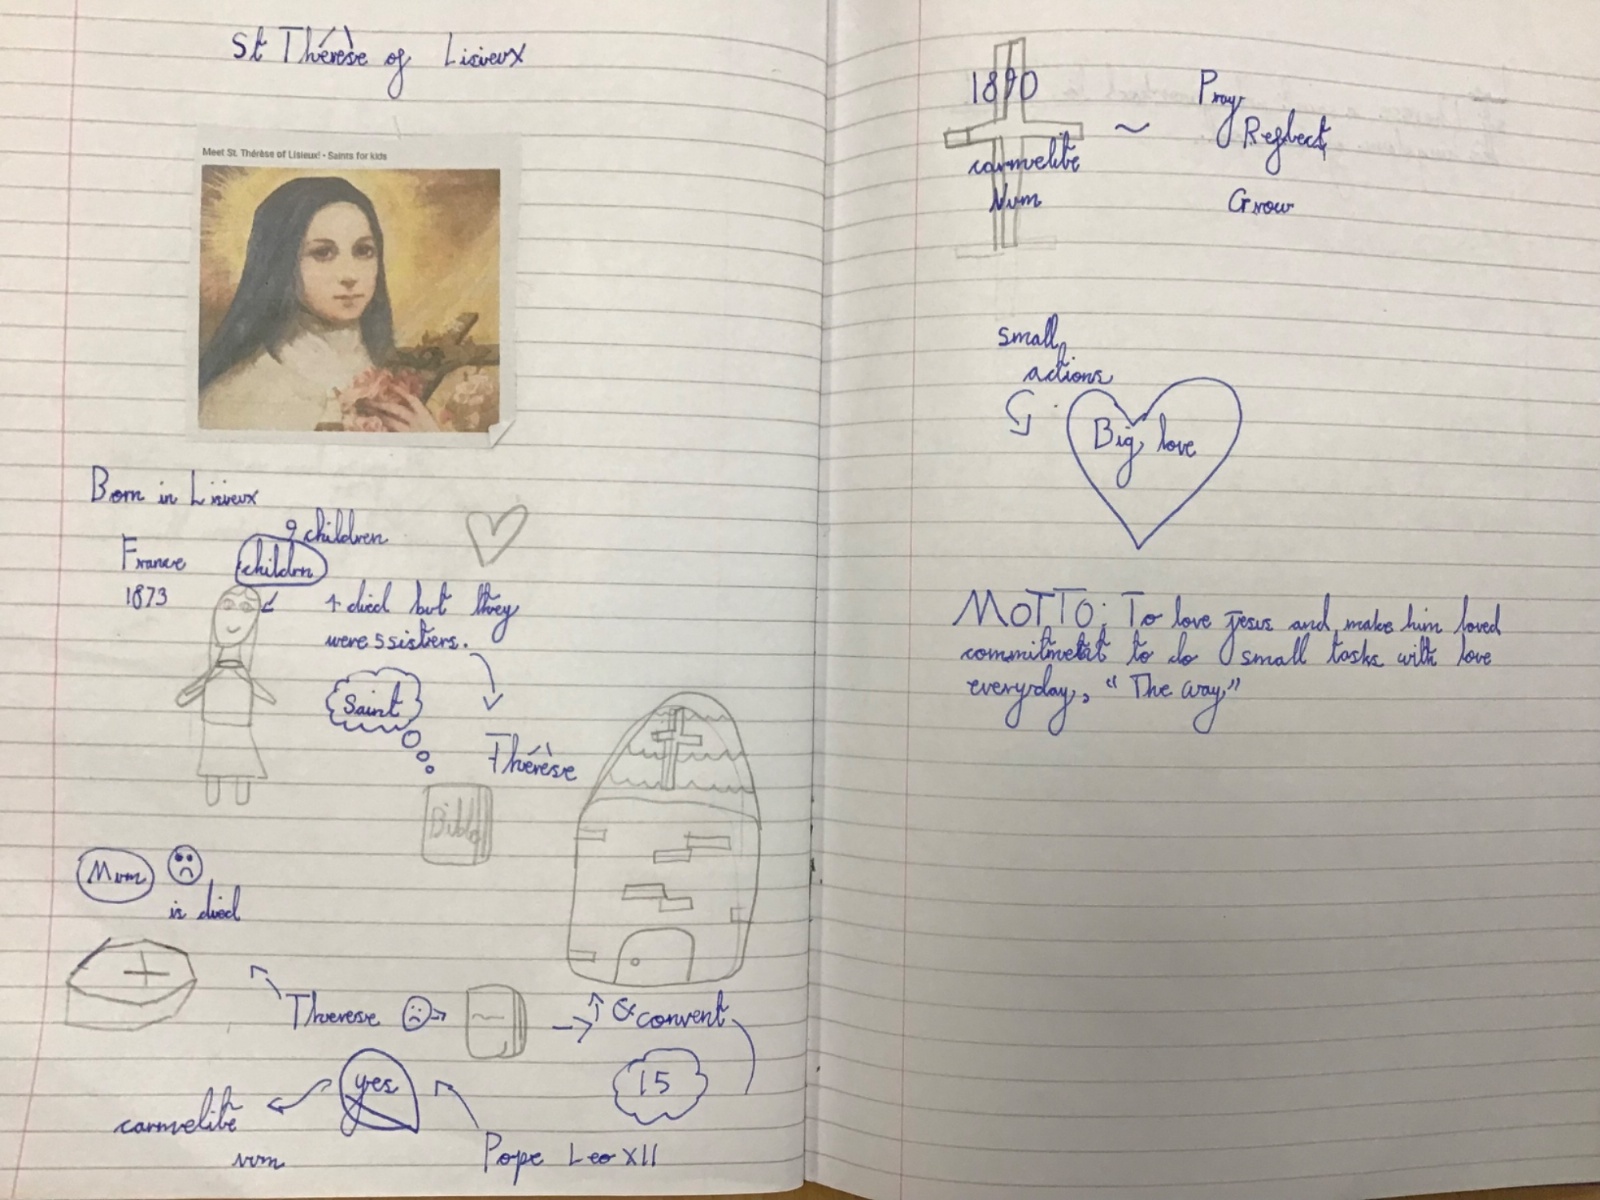 St Thérèse of Lisieux
Meet St. Thérèse of Lisieux! - Saints for kids
Born in Lisieux
France
1873
9 children
childrn
4 died but they
were 5 sisters.
Saint
Thérèse
Bible
Mum
is died
Therese
& convent
15
yes
carmelite
nun
Pope Leo XII
1890
carmelite
Nun
~
Pray
Reflect
Grow
small
actions
Big love
MOTTO: To love Jesus and make him loved
commitmetit to do small tasks with love
everyday, "The way"